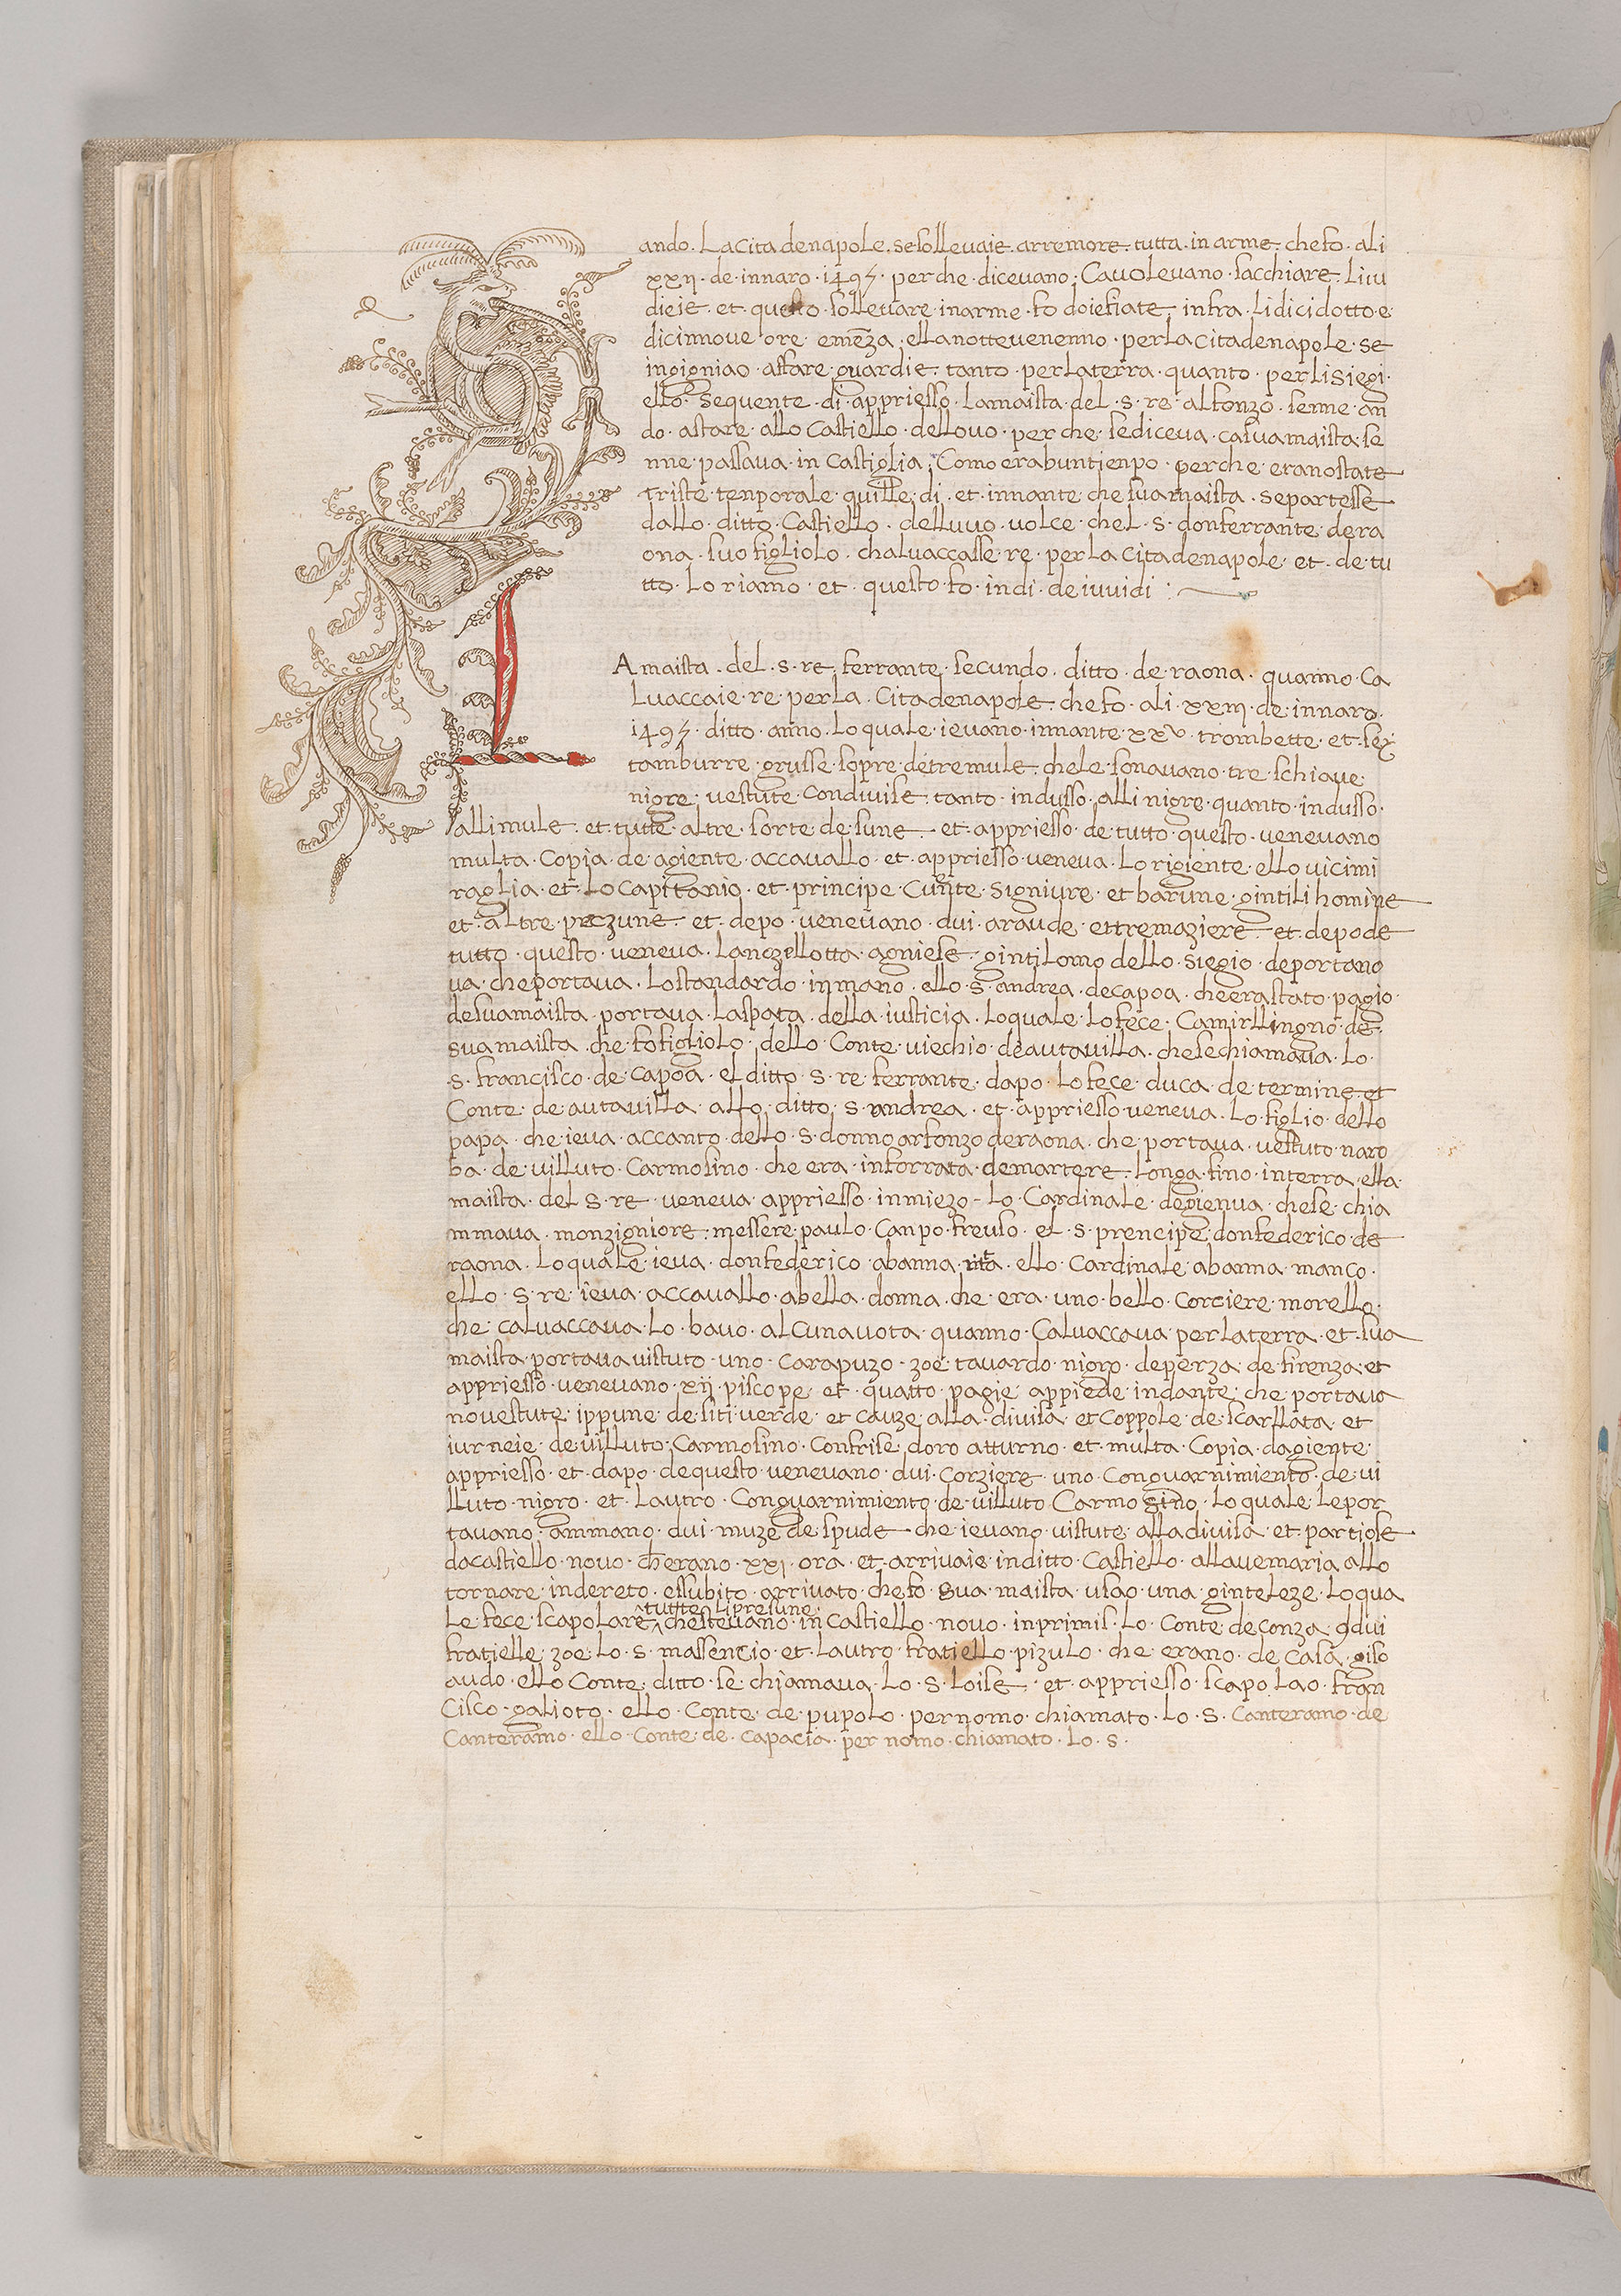 ando. La cita de napole. se sollevaie. arremore. tutta. in arme. che fo. ali
xxii. de. innaro. 1495. perche. dicevano. Ca volevano. sacchiare. li iu
dieie. et questo. sollevare. in arme. fo doie fiate. infra. li dicidotto. e
dicinnove ore emeza. ella notte venenno. per la cita de napole. se
ingigniao. affare. guardie. tanto. per la terra. quanto. per li siegi.
ello. sequente. di. appriesso. la maista. del. s. re. alfonzo. senne. an
do. astare. allo Castiello. dell ovo. perche. se diceva. ca sua maista. se
nne. passava. in Castiglia. Como era buntienpo. perche. erano state
triste. tenporale. quille. di. et. innante. che sua maista. se partesse
dallo. ditto. Castiello. delluvo. volce. chel. s. don ferrante. de ra
ona. suo figliolo. chalvaccasse. re. per la Cita de napole. et. de. tu
tto. Lo riamo. et. questo. fo. in di. de iuvidi :
LA maista. del. s. re. ferrante. secundo. ditto. de raona. quanno. Ca
luaccaie. re. per la. Cita de napole. che fo. ali. xxiii. de. innaro.
1495. ditto. anno. Lo quale. ievano. innante. xxv. trombette. et. sex
tamburre. grusse. sopre. de tre mule. che le. sonavano. tre. schiave
nigre. vestute. Con divise. tanto. indusso. alli nigre. quanto. indusso.
alli mule. et. tutte. altre. sorte de. sune. et. appriesso. de tutto. questo. venevano
multa. Copia. de. agiente. accavallo. et. appriesso. veneva. Lo rigiente. ello vicimi
raglia. et. Lo Capitanio. et. principe. Cunte. signiure. et barune. gintili homine
et. altre. peczune. et. depo. venevano. dui. araude. et tre maziere. et. depo de
tutto. questo. veneva. Lanczellotta. agniese. gintilomo dello. siegio. de portano
va. che portava. Lo standardo. in mano. ello. s. andrea. de capoa. che era stato. pagio.
de sua maista. portava. La spata. della. iusticia. Lo quale. Lo fece. Camirllingno. de.
sua maista. che. fo figliolo. dello. Conte. viechio. de autavilla. che se chiamava. Lo.
.s. francisco. de. capoa. el ditto. s. re ferrante. dapo. Lo fece. duca. de termine. et
Conte. de autavilla. allo. ditto. s. andrea. et. appriesso. veneva. Lo. figlio. dello
papa. che. ieva. accanto. dello. s. donno arfonzo de raona. che. portava. vestuto. na ro
ba. de villuto. Carmosino. che era. inforrata. de martere. Longa. fino. in terra. ella.
maista. del s. re. veneva. appriesso. in miezo. Lo. Cardinale. de gienua. che se. chia
mmava. monzigniore. messere. paulo. Canpo. freuso. el. s. prencipe. don federico. de
raona. Lo quale. ieva. don federico. abanna. ritta. ello. Cardinale. abanna. manco.
ello. s. re. ieva. accavallo. abella. donna. che. era. uno. bello. Corciere. morello.
che. calvaccava. Lo. bavo. alcuna vota. quanno. Calvaccava. per la terra. et. sua
maista. portava vistuto. uno. Carapuzo. zoe. tavardo. nigro. deperza. de. firenza. et
appriesso. venevano. xii. piscope. et. quatto. pagie. appiede. indante. che portava
no vestute. ippune. de. siti. verde. et cauze. alla. divisa. et Coppole. de. scarllata. et
iurneie. de villuto. Carmosino. Con frise doro atturno. et. multa. Copia. dagiente.
appriesso. et. dapo. de questo. venevano. dui. Corziere. uno. Conguarnimiento. de. vi
lluto. nigro. et. Lautro. Conguarnimiento. de. villuto. Carmo sino. Lo quale. Le por
tavano. ammano. dui. muze. de spude. che. ievano. vistute. alla divisa. et. partiose
da castiello. novo. cherano. xxi. ora. et. arrivaie. in ditto. Castiello. all avemaria. allo
tornare. indereto. essubito. arrivato. che fo. sua. maista. usao. una. ginteleze. Lo qua
Le fece. scapolare tutte li presune che stevano. in Castiello. novo. in primis. Lo. Conte. de conza. con dui
fratielle. zoe. Lo. s. massencio. et. Lautro. fratiello. pizulo. che erano. de casa. giso
audo. ello Conte. ditto. se chiamava. Lo. s. Loise. et. appriesso. scapolao. fran
Cisco. galioto. ello. Conte. de. pupolo. per nomo. chiamato. Lo. s. Canteramo. de
Canteramo. ello. Conte. de. capacia. per nomo. chiamato. Lo. s.